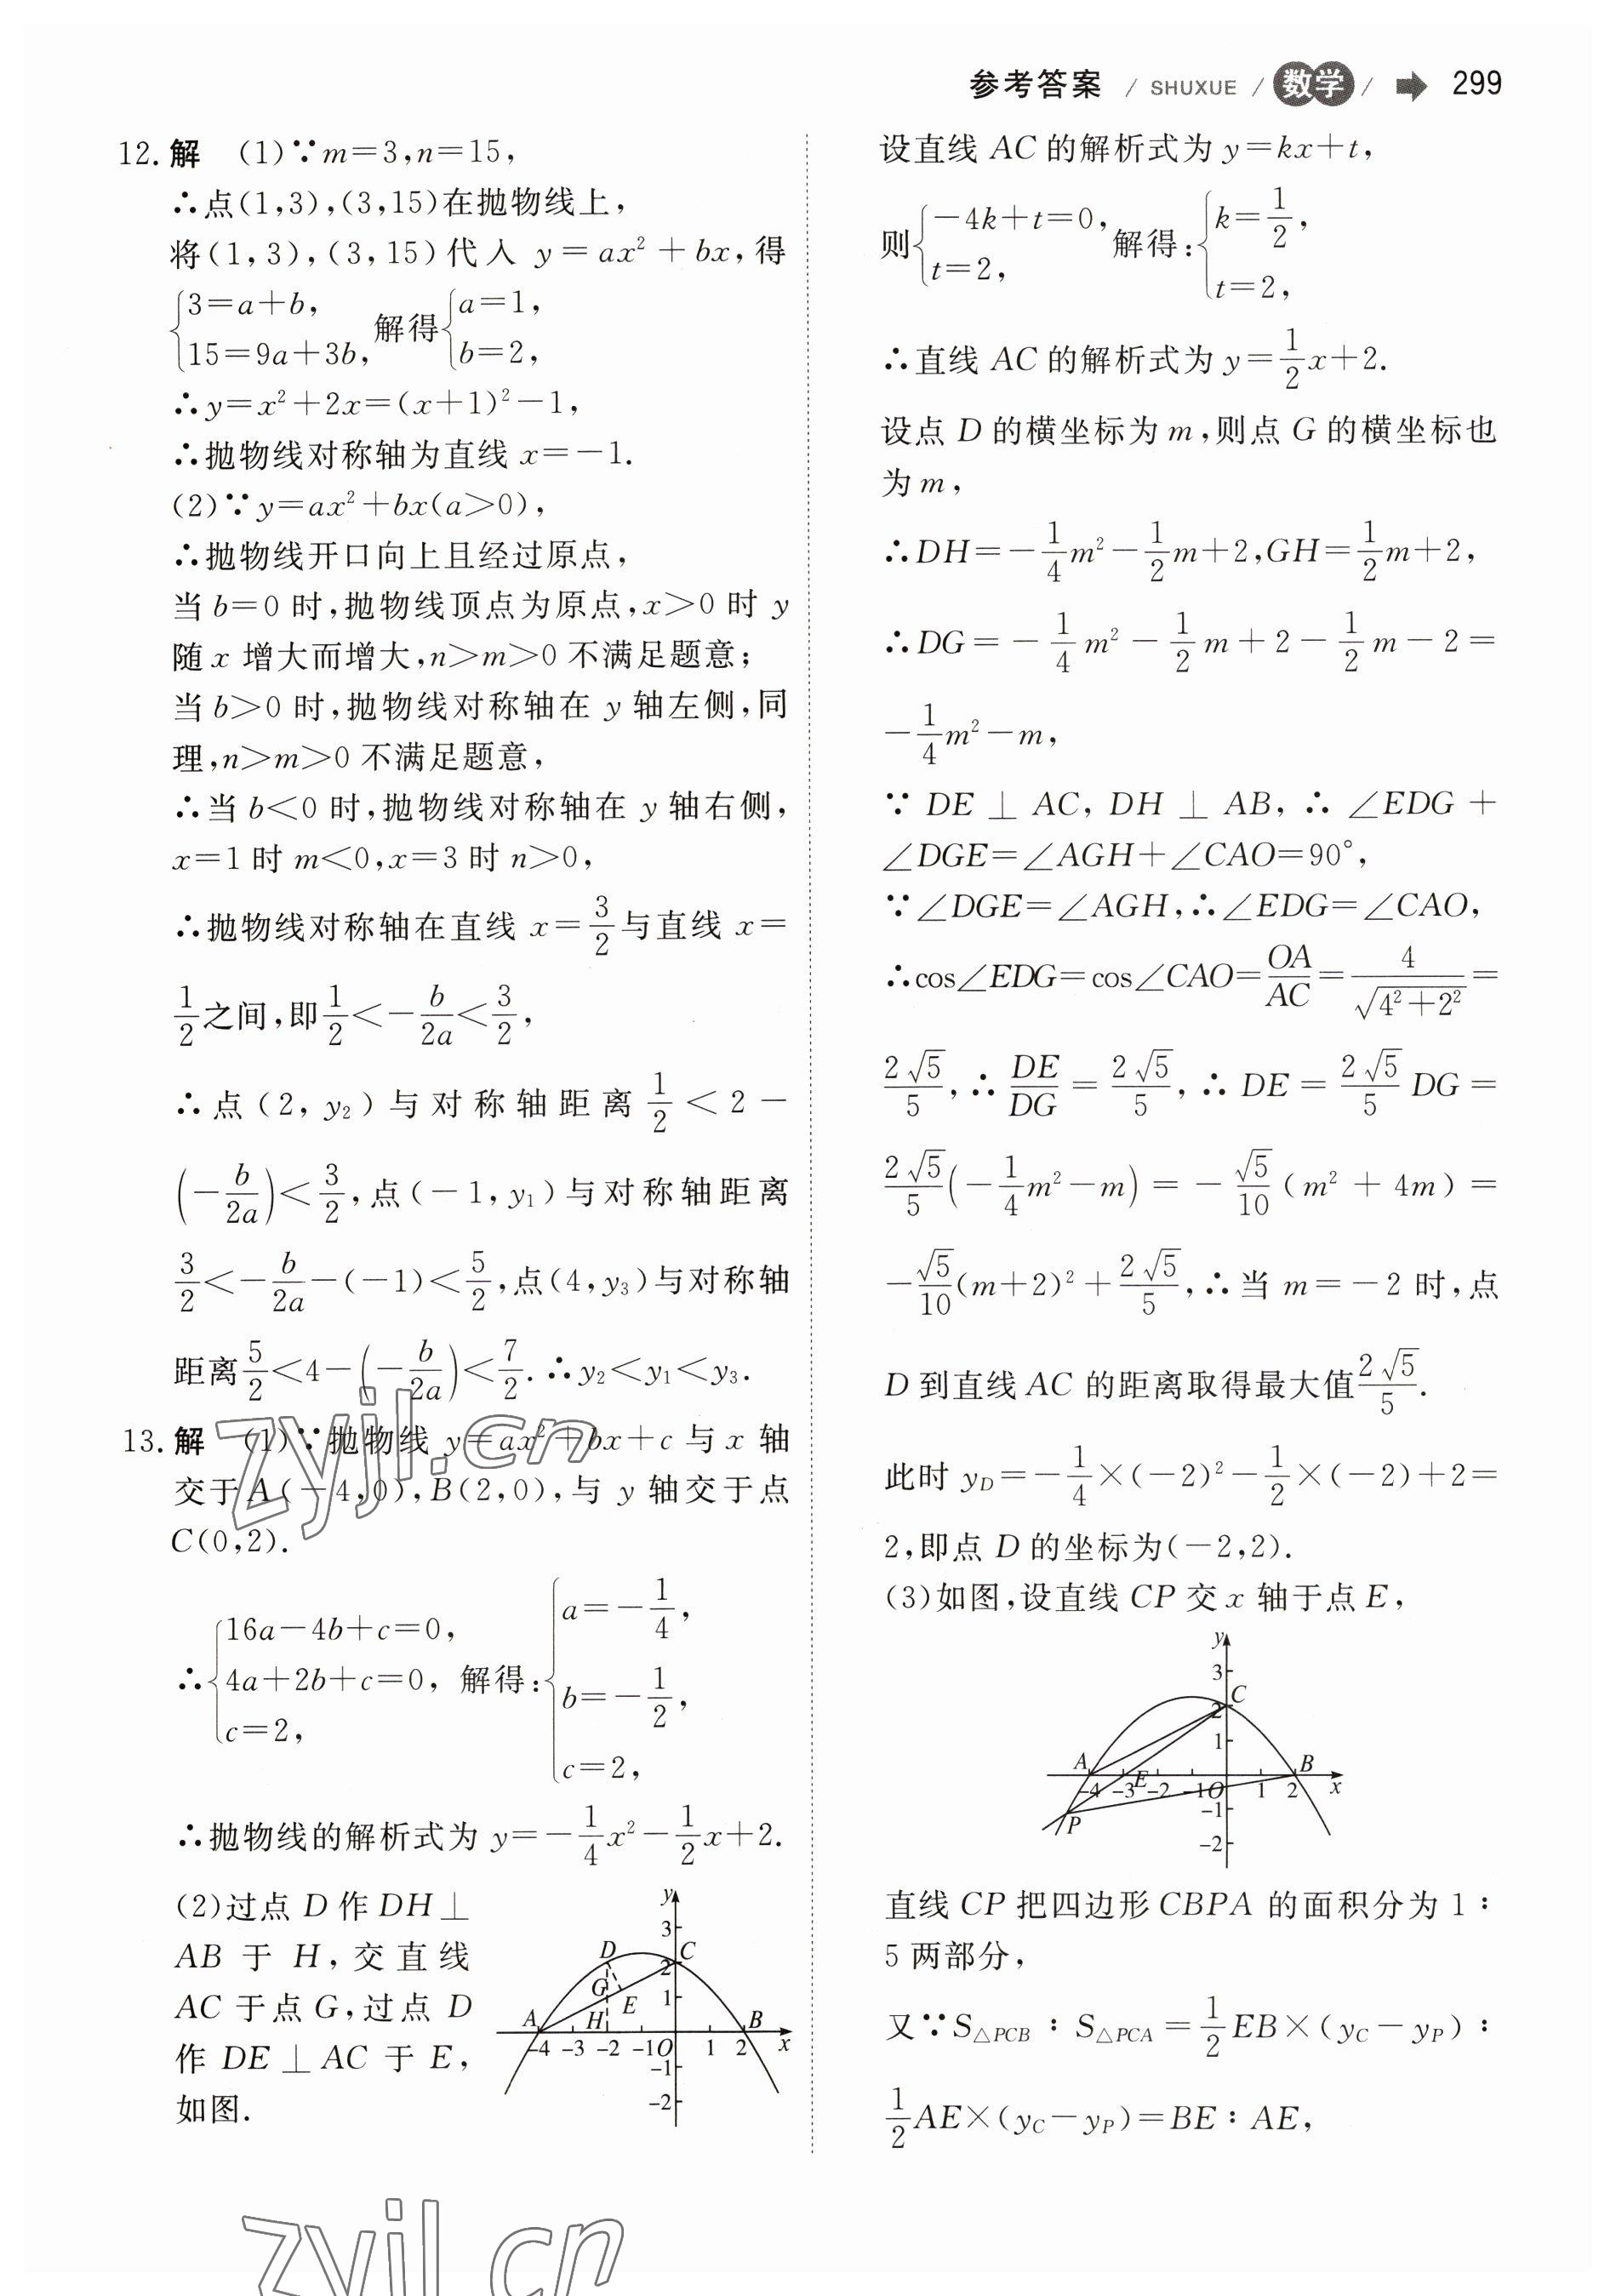 参考答案 / SHUXUE / 数学 / 299
12. 解 (1)∵m=3,n=15,
∴点(1,3),(3,15)在抛物线上,
将(1,3),(3,15)代入 y=ax²+bx,得
{3=a+b, 15=9a+3b, 解得{a=1, b=2,
∴y=x²+2x=(x+1)²-1,
∴抛物线对称轴为直线 x=-1.
(2)∵y=ax²+bx(a>0),
∴抛物线开口向上且经过原点,
当 b=0 时,抛物线顶点为原点,x>0 时 y
随 x 增大而增大,n>m>0 不满足题意;
当 b>0 时,抛物线对称轴在 y 轴左侧,同
理,n>m>0 不满足题意,
∴当 b<0 时,抛物线对称轴在 y 轴右侧,
x=1 时 m<0,x=3 时 n>0,
∴抛物线对称轴在直线 x=3/2与直线 x=
1/2之间,即1/2<-b/2a<3/2,
∴点(2,y₂)与对称轴距离1/2<2-
(-b/2a)<3/2,点(-1,y₁)与对称轴距离
3/2<-b/2a-(-1)<5/2,点(4,y₃)与对称轴
距离5/2<4-(-b/2a)<7/2.∴y₂<y₁<y₃.
13. 解 (1)∵抛物线 y=ax²+bx+c 与 x 轴
交于 A(-4,0),B(2,0),与 y 轴交于点
C(0,2).
∴{16a-4b+c=0, 4a+2b+c=0, c=2, 解得:{a=-1/4, b=-1/2, c=2,
∴抛物线的解析式为 y=-1/4x²-1/2x+2.
(2)过点 D 作 DH⊥
AB 于 H,交直线
AC 于点 G,过点 D
作 DE⊥AC 于 E,
如图.
y
3
D
C
2
G
E
1
A
H
B
-4 -3 -2 -1 O 1 2 x
-1
-2
zyjl.cn
zyjl.cn
设直线 AC 的解析式为 y=kx+t,
则{-4k+t=0, t=2, 解得:{k=1/2, t=2,
∴直线 AC 的解析式为 y=1/2x+2.
设点 D 的横坐标为 m,则点 G 的横坐标也
为 m,
∴DH=-1/4m²-1/2m+2,GH=1/2m+2,
∴DG=-1/4m²-1/2m+2-1/2m-2=
-1/4m²-m,
∵DE⊥AC,DH⊥AB,∴∠EDG+
∠DGE=∠AGH+∠CAO=90°,
∵∠DGE=∠AGH,∴∠EDG=∠CAO,
∴cos∠EDG=cos∠CAO=OA/AC=4/√(4²+2²)=
2√5/5,∴DE/DG=2√5/5,∴DE=2√5/5DG=
2√5/5(-1/4m²-m)=-√5/10(m²+4m)=
-√5/10(m+2)²+2√5/5,∴当 m=-2 时,点
D 到直线 AC 的距离取得最大值2√5/5.
此时 y_D=-1/4×(-2)²-1/2×(-2)+2=
2,即点 D 的坐标为(-2,2).
(3)如图,设直线 CP 交 x 轴于点 E,
y
3
C
2
1
A
B
-4 -3 E -2 -1 O 1 2 x
-1
P
-2
直线 CP 把四边形 CBPA 的面积分为 1:
5 两部分,
又∵S△PCB:S△PCA=1/2EB×(y_C-y_P):
1/2AE×(y_C-y_P)=BE:AE,